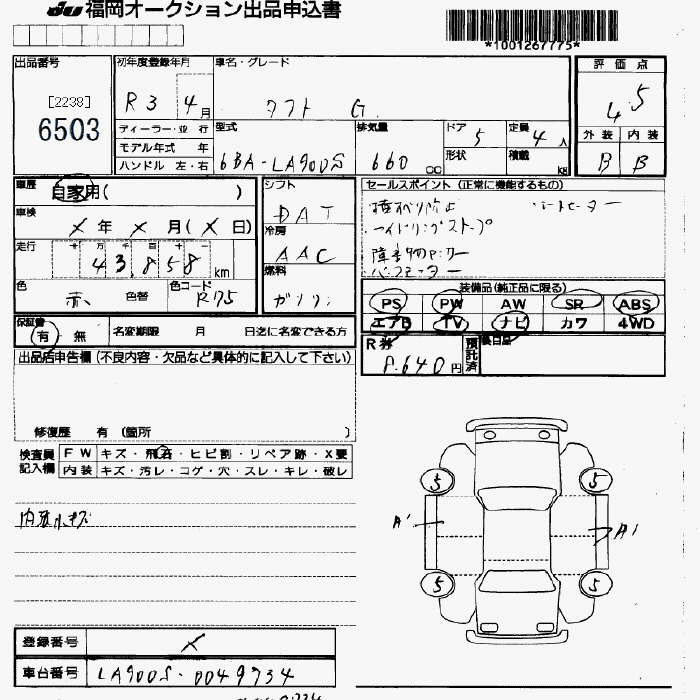 JU 福岡オークション出品申込書
*1001267775*
出品番号
[2238]
6503
初年度登録年月
R3 4月
車名・グレード
タフト G
評価点
4.5
ディーラー・並行
モデル年式 年
ハンドル 左・右
型式
6BA-LA900S
排気量
660 cc
ドア
5
形状
定員
4人
積載
kg
外装 内装
B B
車歴
自家用( )
車検
× 年 × 月(× 日)
走行
十万千百十一
43,858 km
色
赤 色替
色コード
R75
シフト
DAT
冷房
AAC
燃料
ガソリン
セールスポイント (正常に機能するもの)
横滑り防止 シートヒーター
アイドリングストップ
障害物センサー
装備品(純正品に限る)
PS PW AW SR ABS
エアB TV ナビ カワ 4WD
保証書
有・無
名変期限 月 日迄に名変できる方
R券
8.640円
預託済
後日品
出品店申告欄(不良内容・欠品など具体的に記入して下さい)
修復歴 有(箇所 )
検査員記入欄
FW キズ・飛石・ヒビ割・リペア跡・X要
内装 キズ・汚レ・コゲ・穴・スレ・キレ・破レ
内装小キズ
5 5
A' A1
5 5
登録番号
×
車台番号
LA900S-0049734